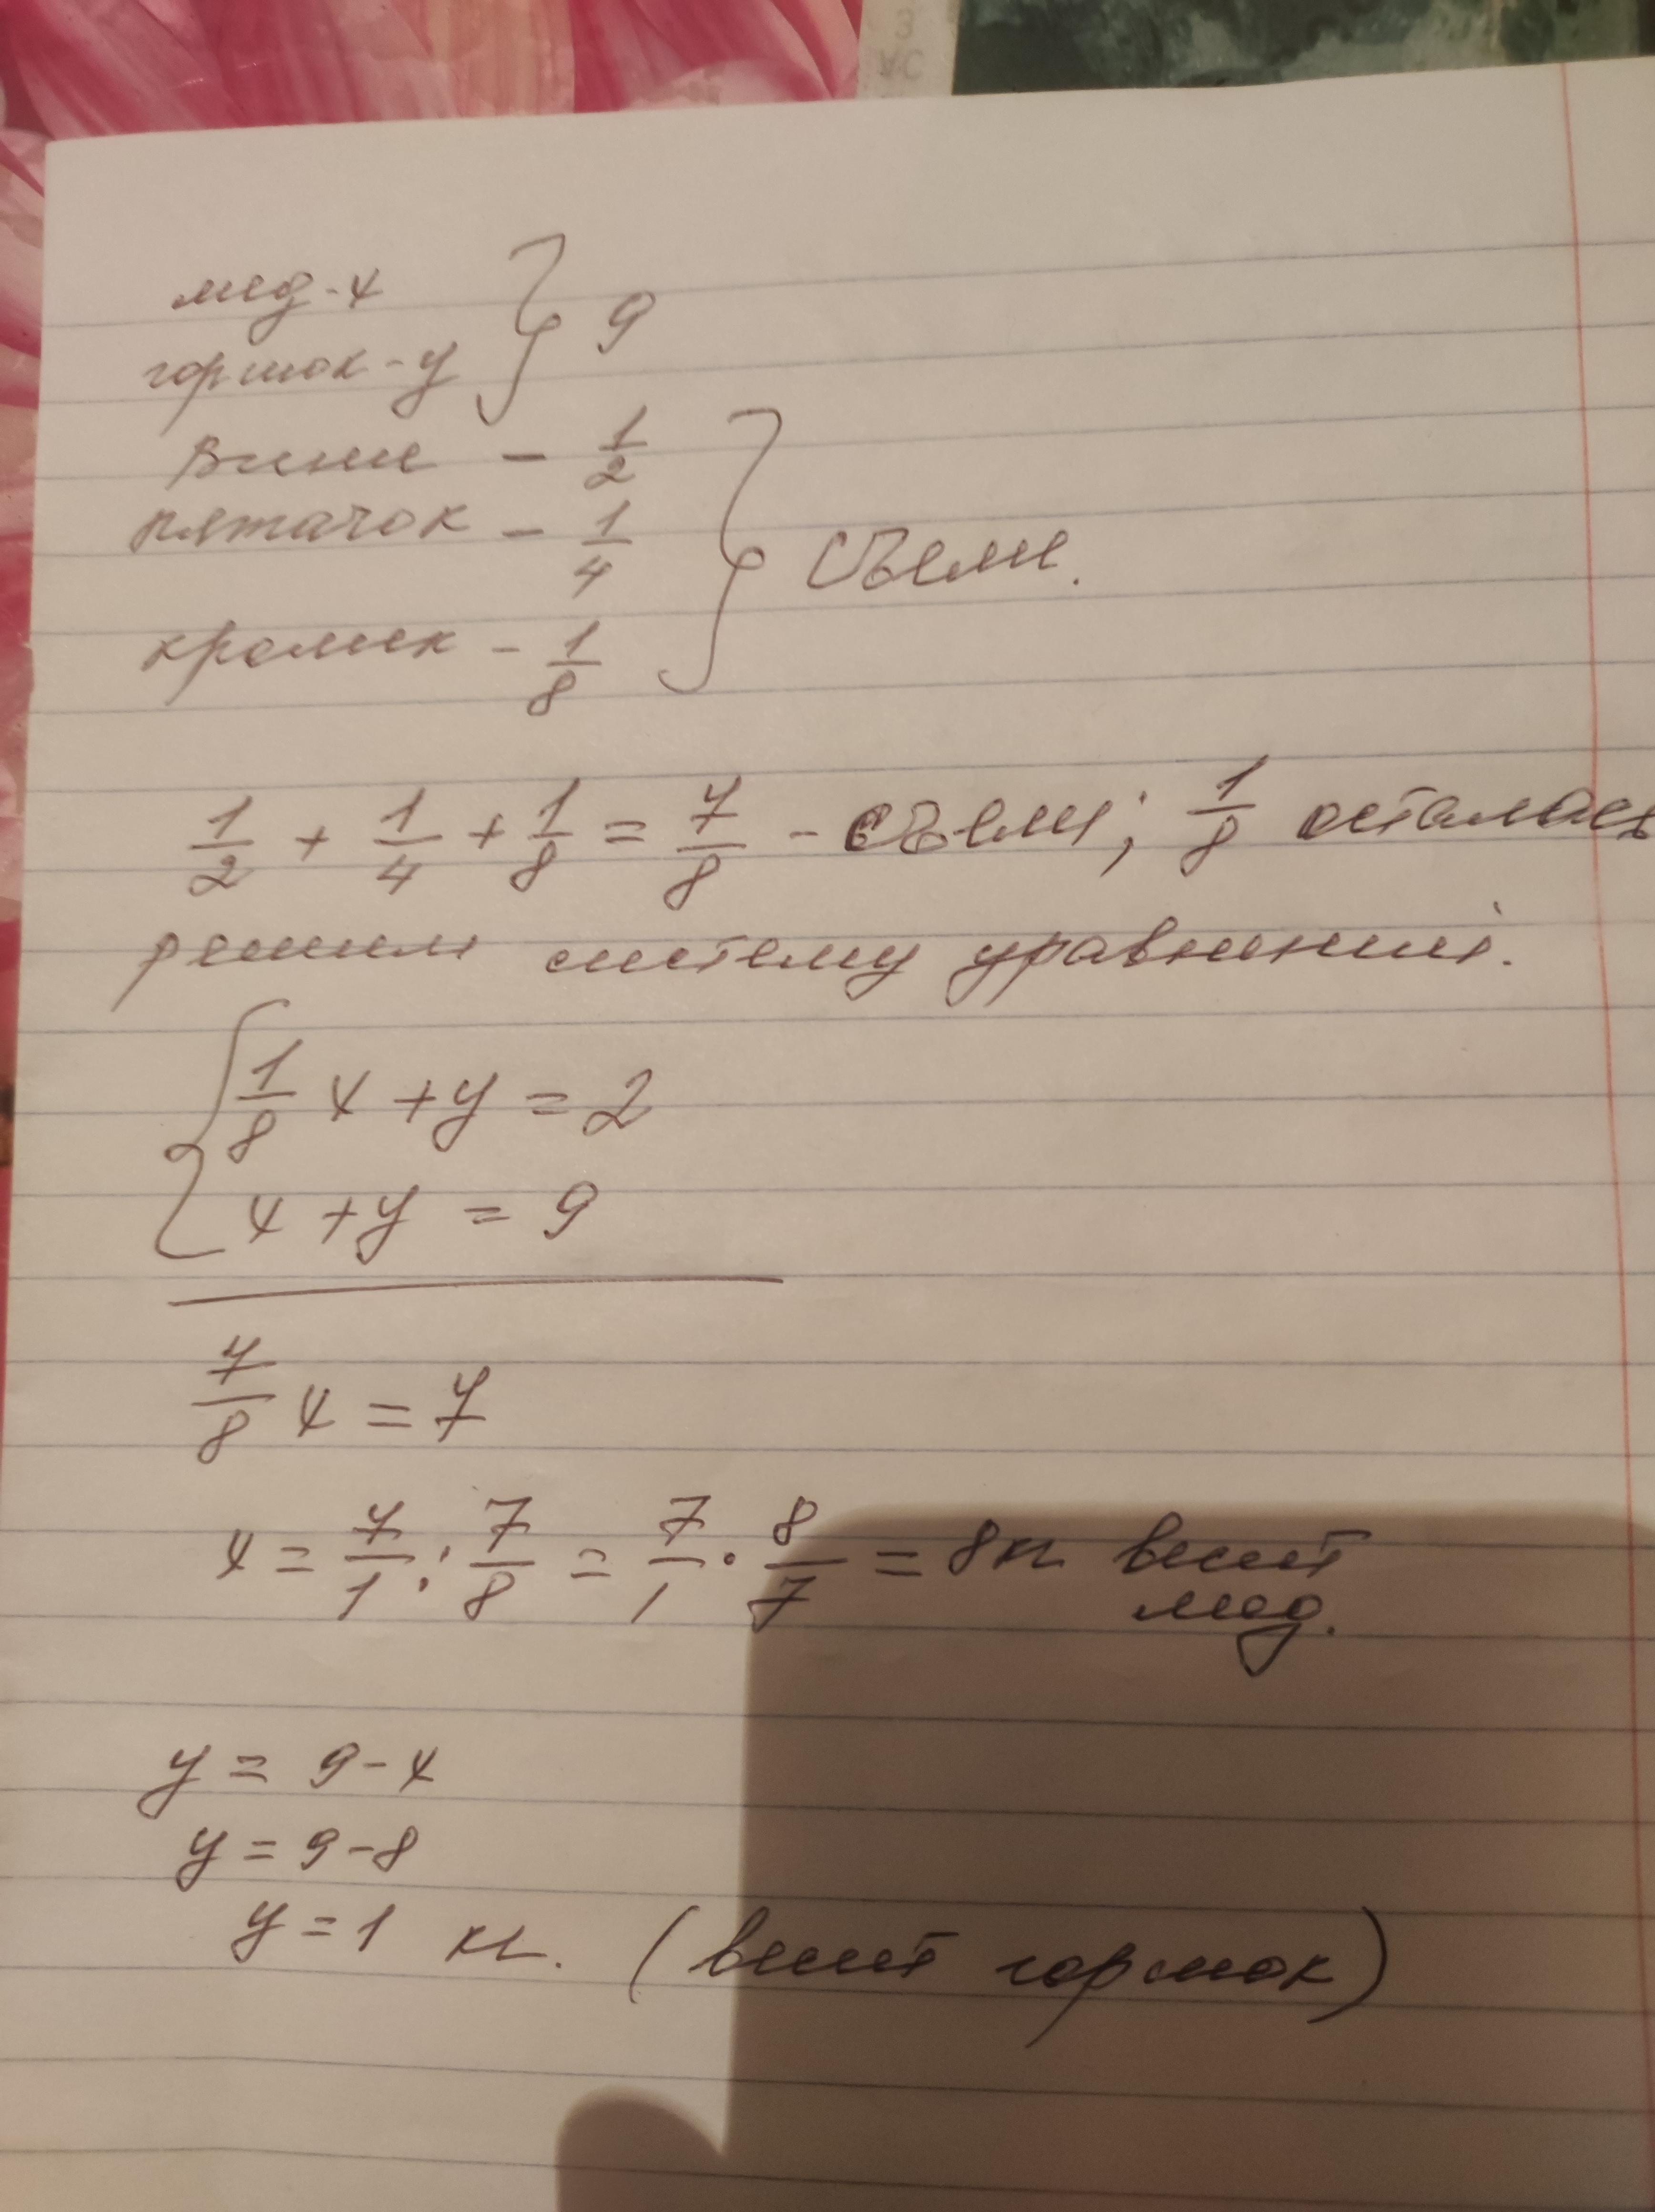 мед - x
горшок - y } 9
Винни - 1/2
пятачок - 1/4 } съели.
кролик - 1/8
1/2 + 1/4 + 1/8 = 7/8 - съели; 1/8 осталась
решим систему уравнений.
{ 1/8 x + y = 2
x + y = 9
7/8 x = 7
x = 7/1 : 7/8 = 7/1 · 8/7 = 8 кг весит
мед.
y = 9 - x
y = 9 - 8
y = 1 кг. (весит горшок)